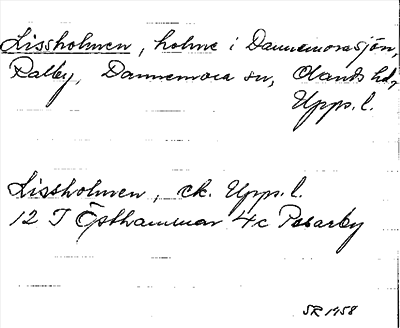 Lissholmen, holme i Dannemorasjön,
Ralby, Dannemora sn, Olands hd,
Upps. l.
Lissholmen, ek. Upps. l.
12 I Östhammar 4c Pesarby
SR 1958